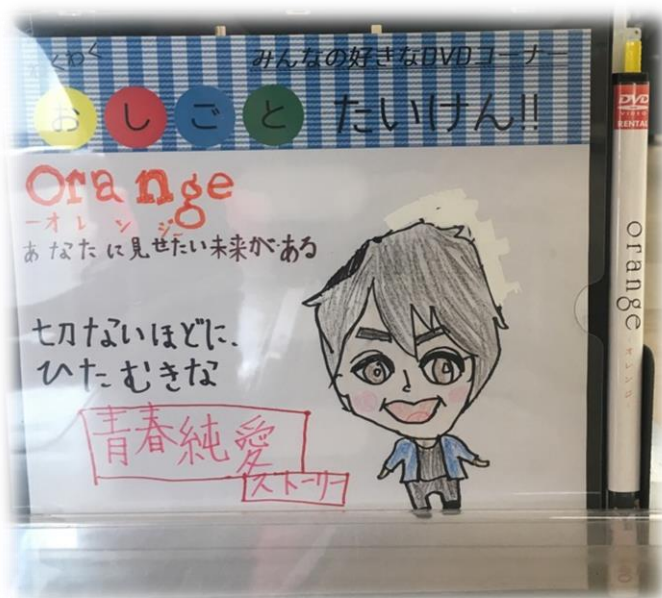 わくわく
みんなの好きなDVDコーナー
おしごと たいけん!!
Orange
ーオレンジー
あなたに見せたい未来がある
切ないほどに、
ひたむきな
青春純愛
ストーリー
DVD
VIDEO
RENTAL
orange
-オレンジ-